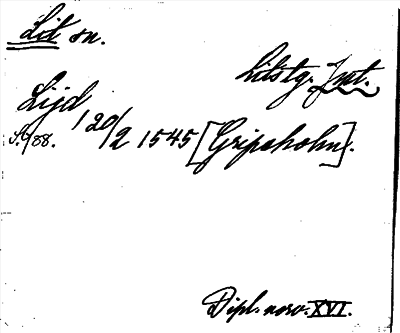 Lit sn.
Litslg. Jmt.
Lijd
S. 188. 20/2 1545 [Gripsholm].
Dipl. norv. XVI.